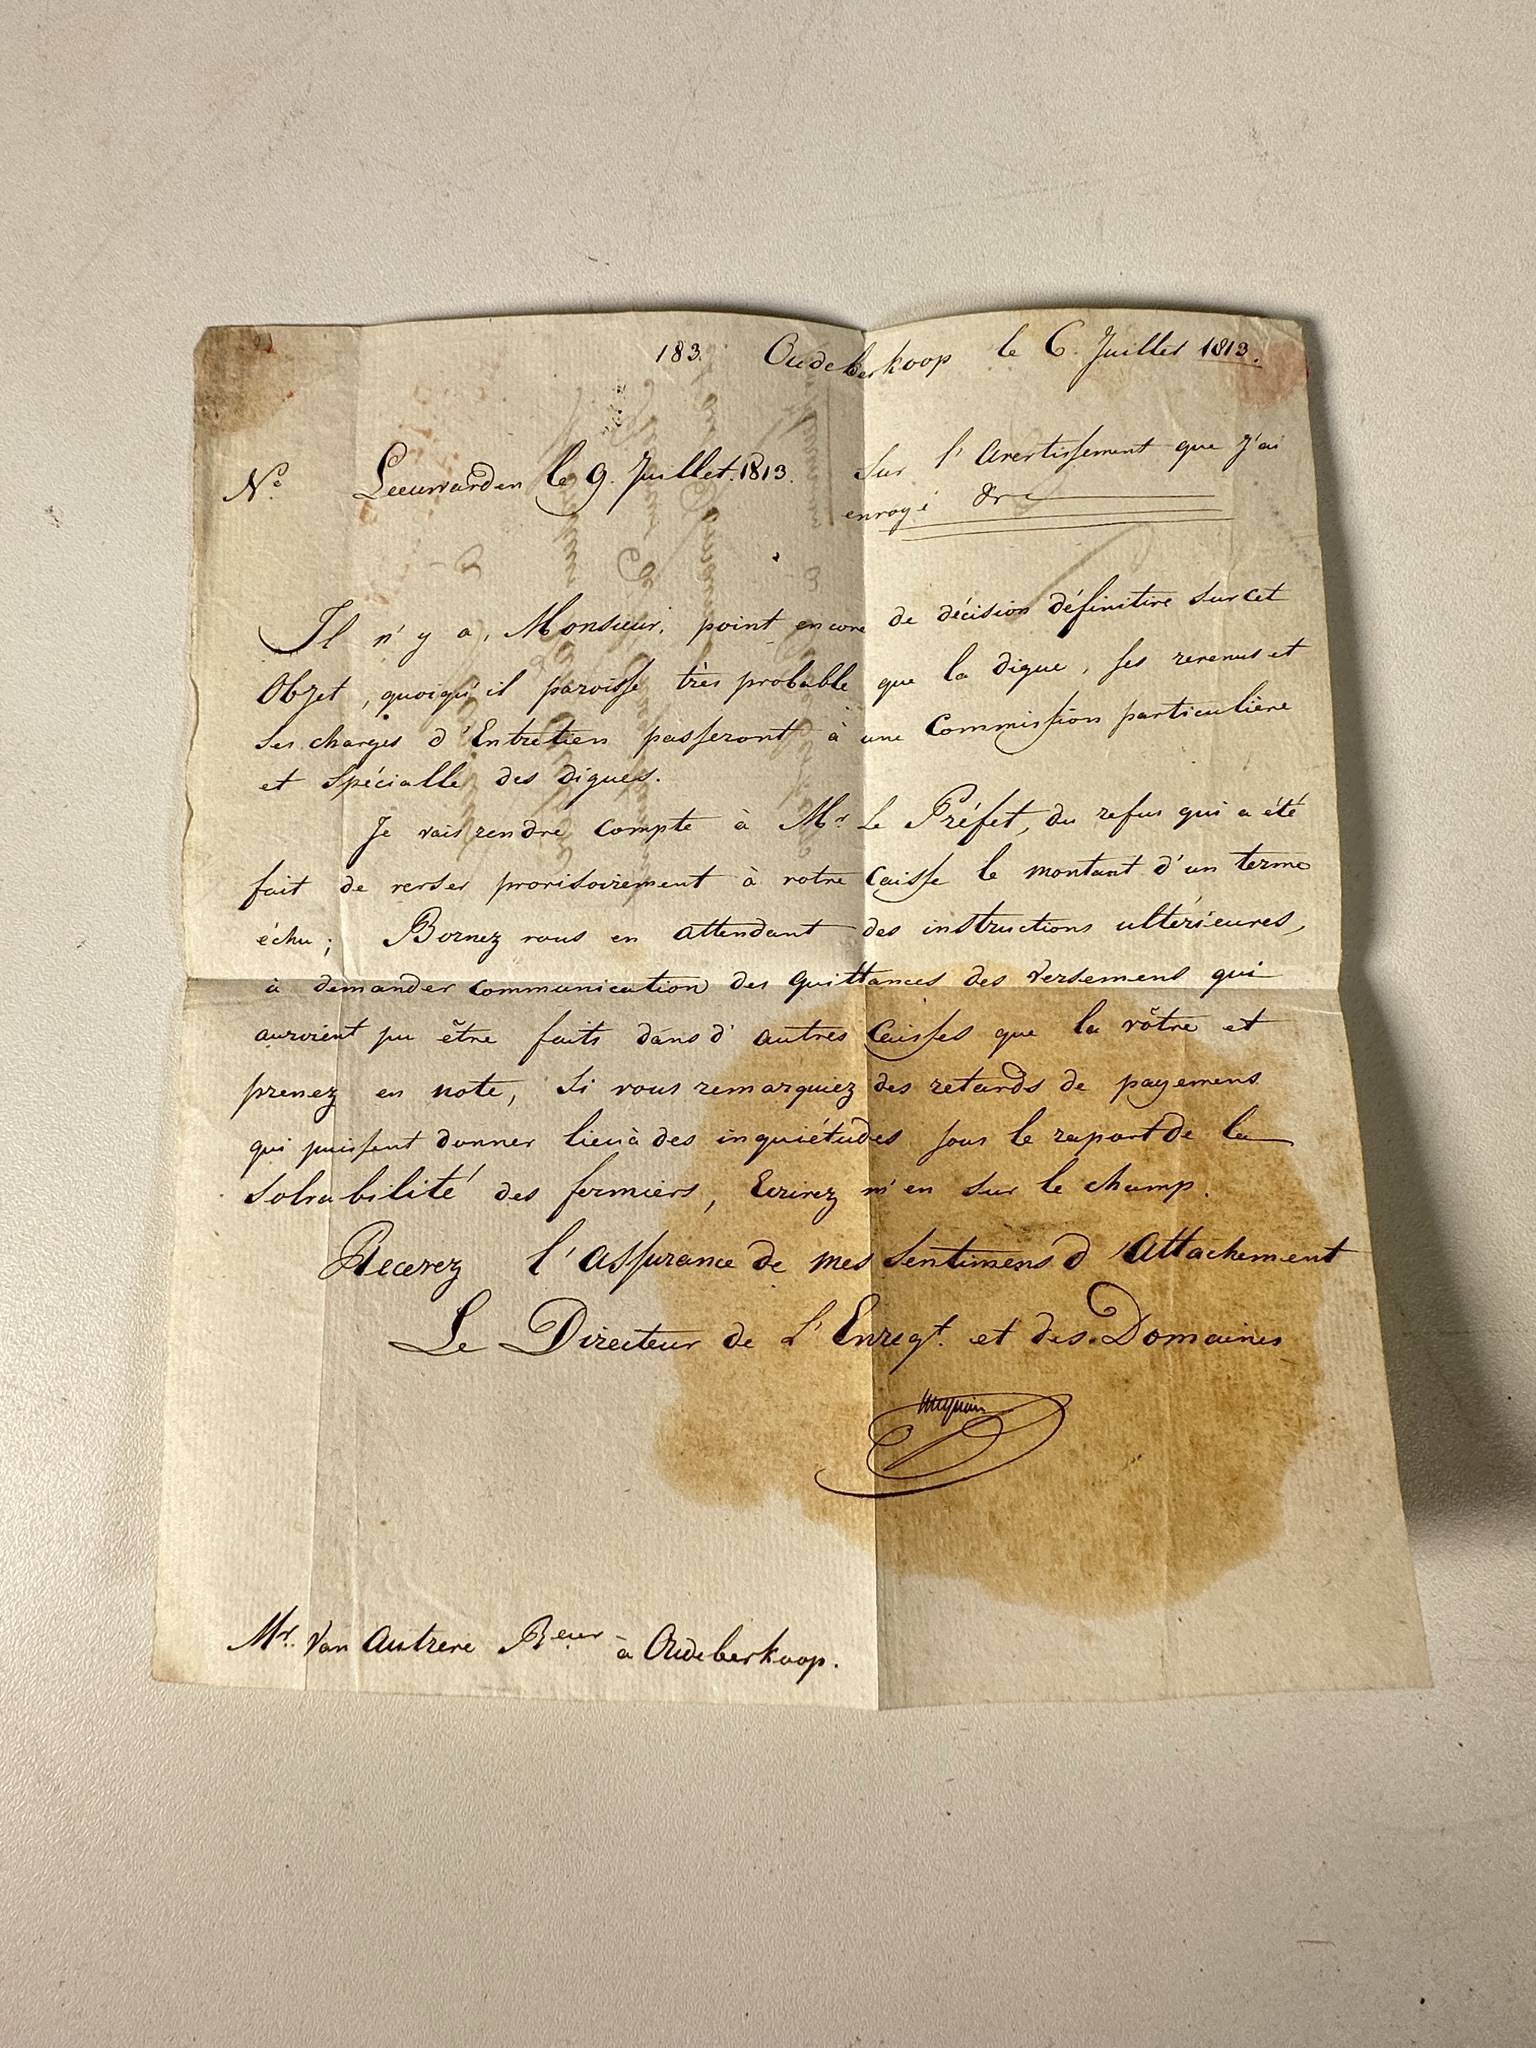 183. Oudeberkoop le 6. Juillet 1813.
Sur l'Avertissement que J'ai
envoyé &c
N.º Leeuwarden le 9. Juillet. 1813.
Il n'y a, Monsieur, point encore de décision définitive sur cet
Objet, quoiqu'il paroisse très probable que la digue, ses revenus et
ses charges d'Entretien passeront à une Commission particulière
et spécialle des digues.
Je vais rendre compte à Mr. Le Préfet, du refus qui a été
fait de verser provisoirement à votre caisse le montant d'un terme
échu; Bornez vous en attendant des instructions ultérieures,
à demander communication des quittances des versemens qui
auroient pu être faits dans d'autres Caisses que la vôtre et
prenez en note, si vous remarquiez des retards de payemens
qui puissent donner lieu à des inquiétudes sous le raport de la
solvabilité des fermiers, Ecrivez m'en sur le champ.
Recevez l'assurance de mes sentimens d'Attachement
Le Directeur de L'Enregt. et des Domaines
Mr. Van Autreve Reveur à Oudeberkoop.